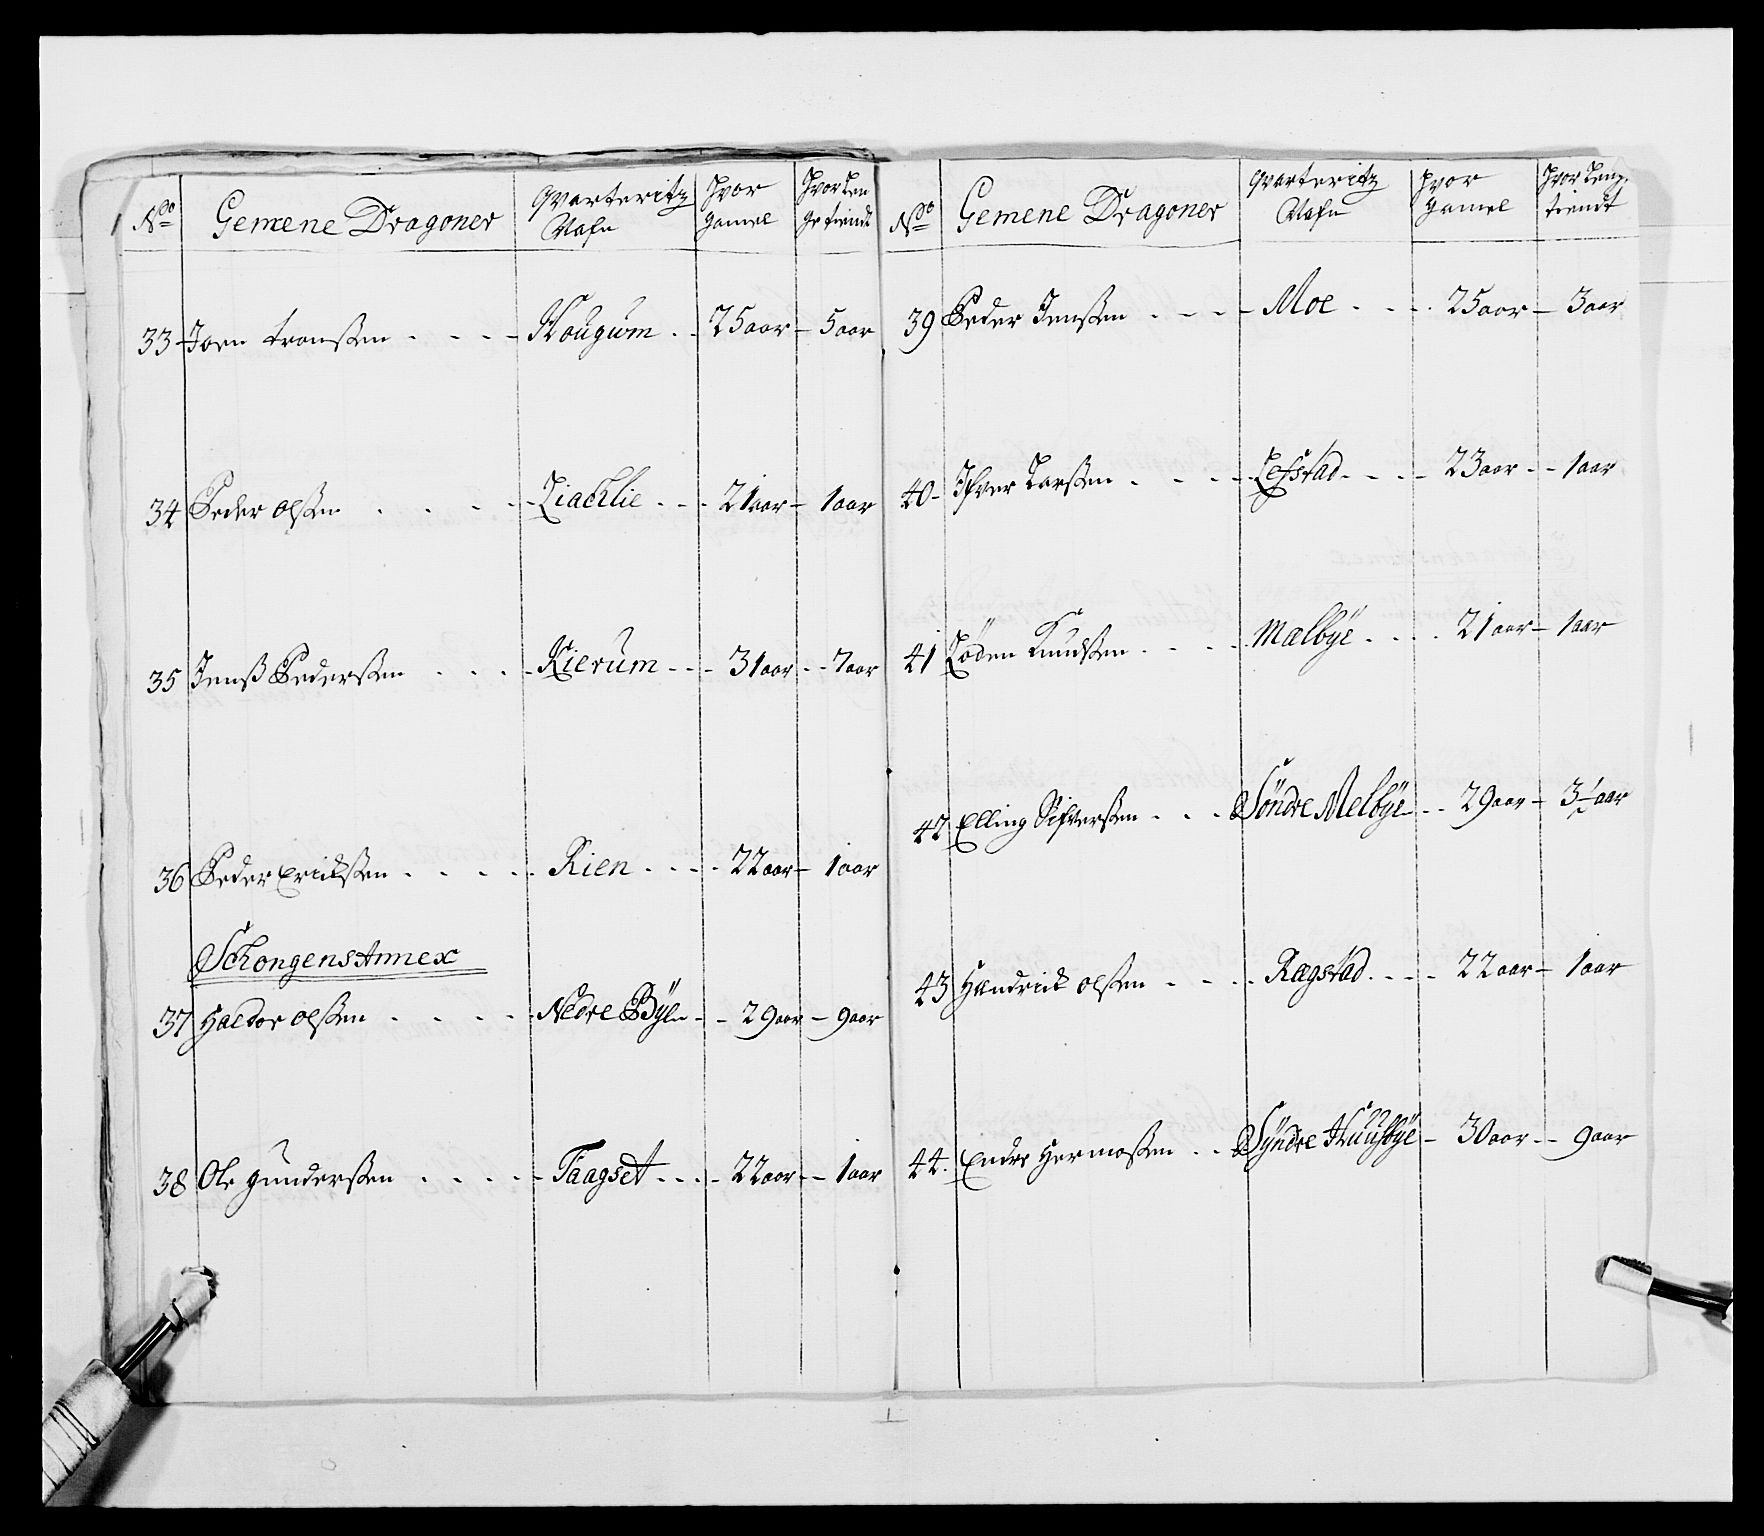 No Gemene Dragoner Qvarteritz Nafn Hvor gamel Hvor len ge tiendt
33 Joen tronßen Hougum 25 aar 5 aar
34 Peder olßen Liachlie 21 aar 1 aar
35 Jenß Pederßen Kierum 31 aar 7 aar
36 Peder Erichßen Rien 22 aar 1 aar
Schongens Annex
37 Haldor olßen Nedre Bÿe 29 aar 9 aar
38 Ole gunderßen Taagset 22 aar 1 aar
No Gemene Dragoner Qvarteritz Nafn Hvor gamel Hvor leng tiendt
39 Peder Jenßen Moe 25 aar 3 aar
40 Ifver Larßen Lefstad 23 aar 1 aar
41 Löden Knudßen Mælbÿe 21 aar 1 aar
42 Elling Sifverßen Söndre Melbÿe 29 aar 3½ aar
43 Hendrich olßen Rægstad 22 aar 1 aar
44 Endre Hermoßen Syndre Huusbÿe 30 aar 9 aar